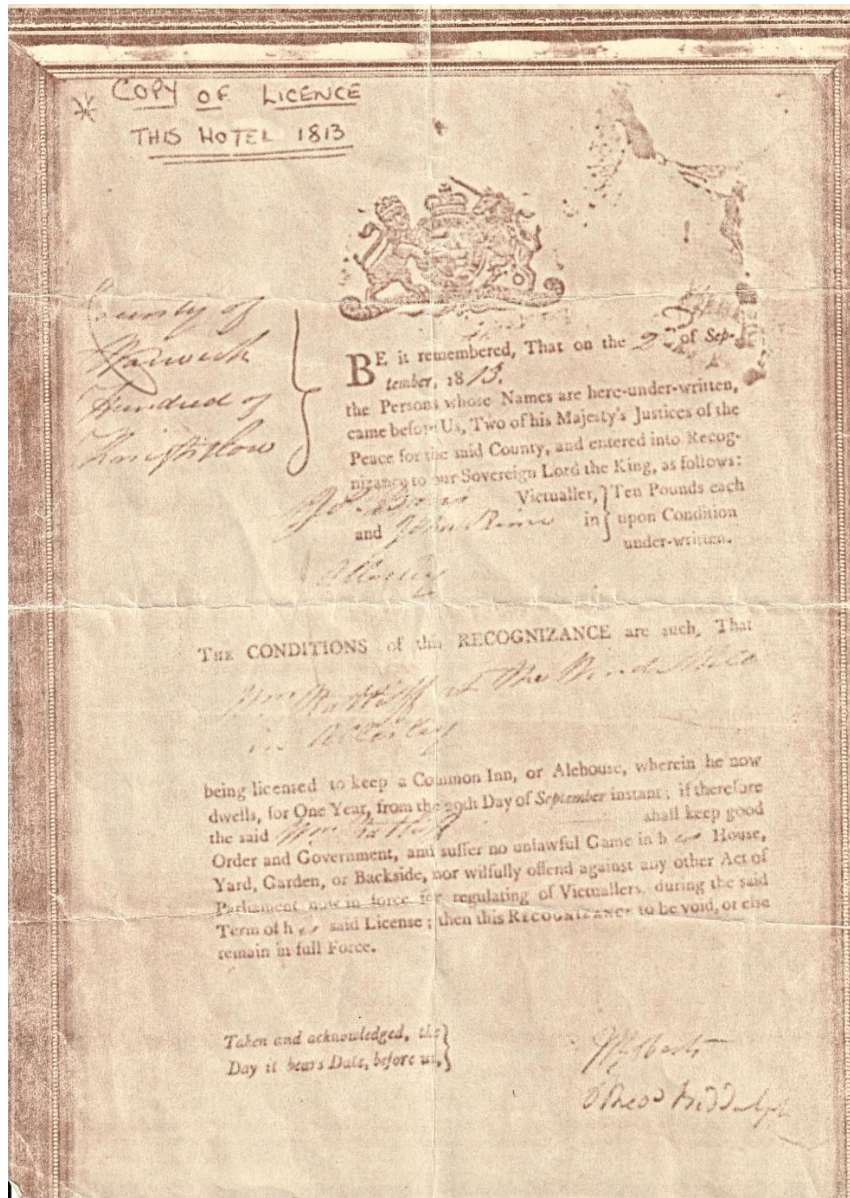 * COPY OF LICENCE
THIS HOTEL 1813
County of
Warwick
Hundred of
Knightlow
BE it remembered, That on the 2d of Sep-
tember, 1813.
the Persons whose Names are here-under-written,
came before Us, Two of his Majesty's Justices of the
Peace for the said County, and entered into Recog-
nizance to our Sovereign Lord the King, as follows:
Victualler, Ten Pounds each
and John in upon Condition
under-written.
THE CONDITIONS of this RECOGNIZANCE are such, That
Wm Ratliff at The Wind Mill
in
being licensed to keep a Common Inn, or Alehouse, wherein he now
dwells, for One Year, from the 29th Day of September instant; if therefore
the said Wm Ratliff shall keep good
Order and Government, and suffer no unlawful Game in h is House,
Yard, Garden, or Backside, nor wilfully offend against any other Act of
Parliament now in force for regulating of Victuallers, during the said
Term of h is said License; then this RECOGNIZANCE to be void, or else
remain in full Force.
Taken and acknowledged, the
Day it bears Date, before us,
Theos Biddulph